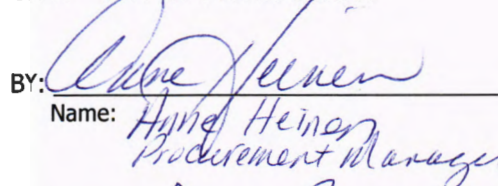 BY: Anne Heinen
Name: Anne Heinen
Procurement Manager